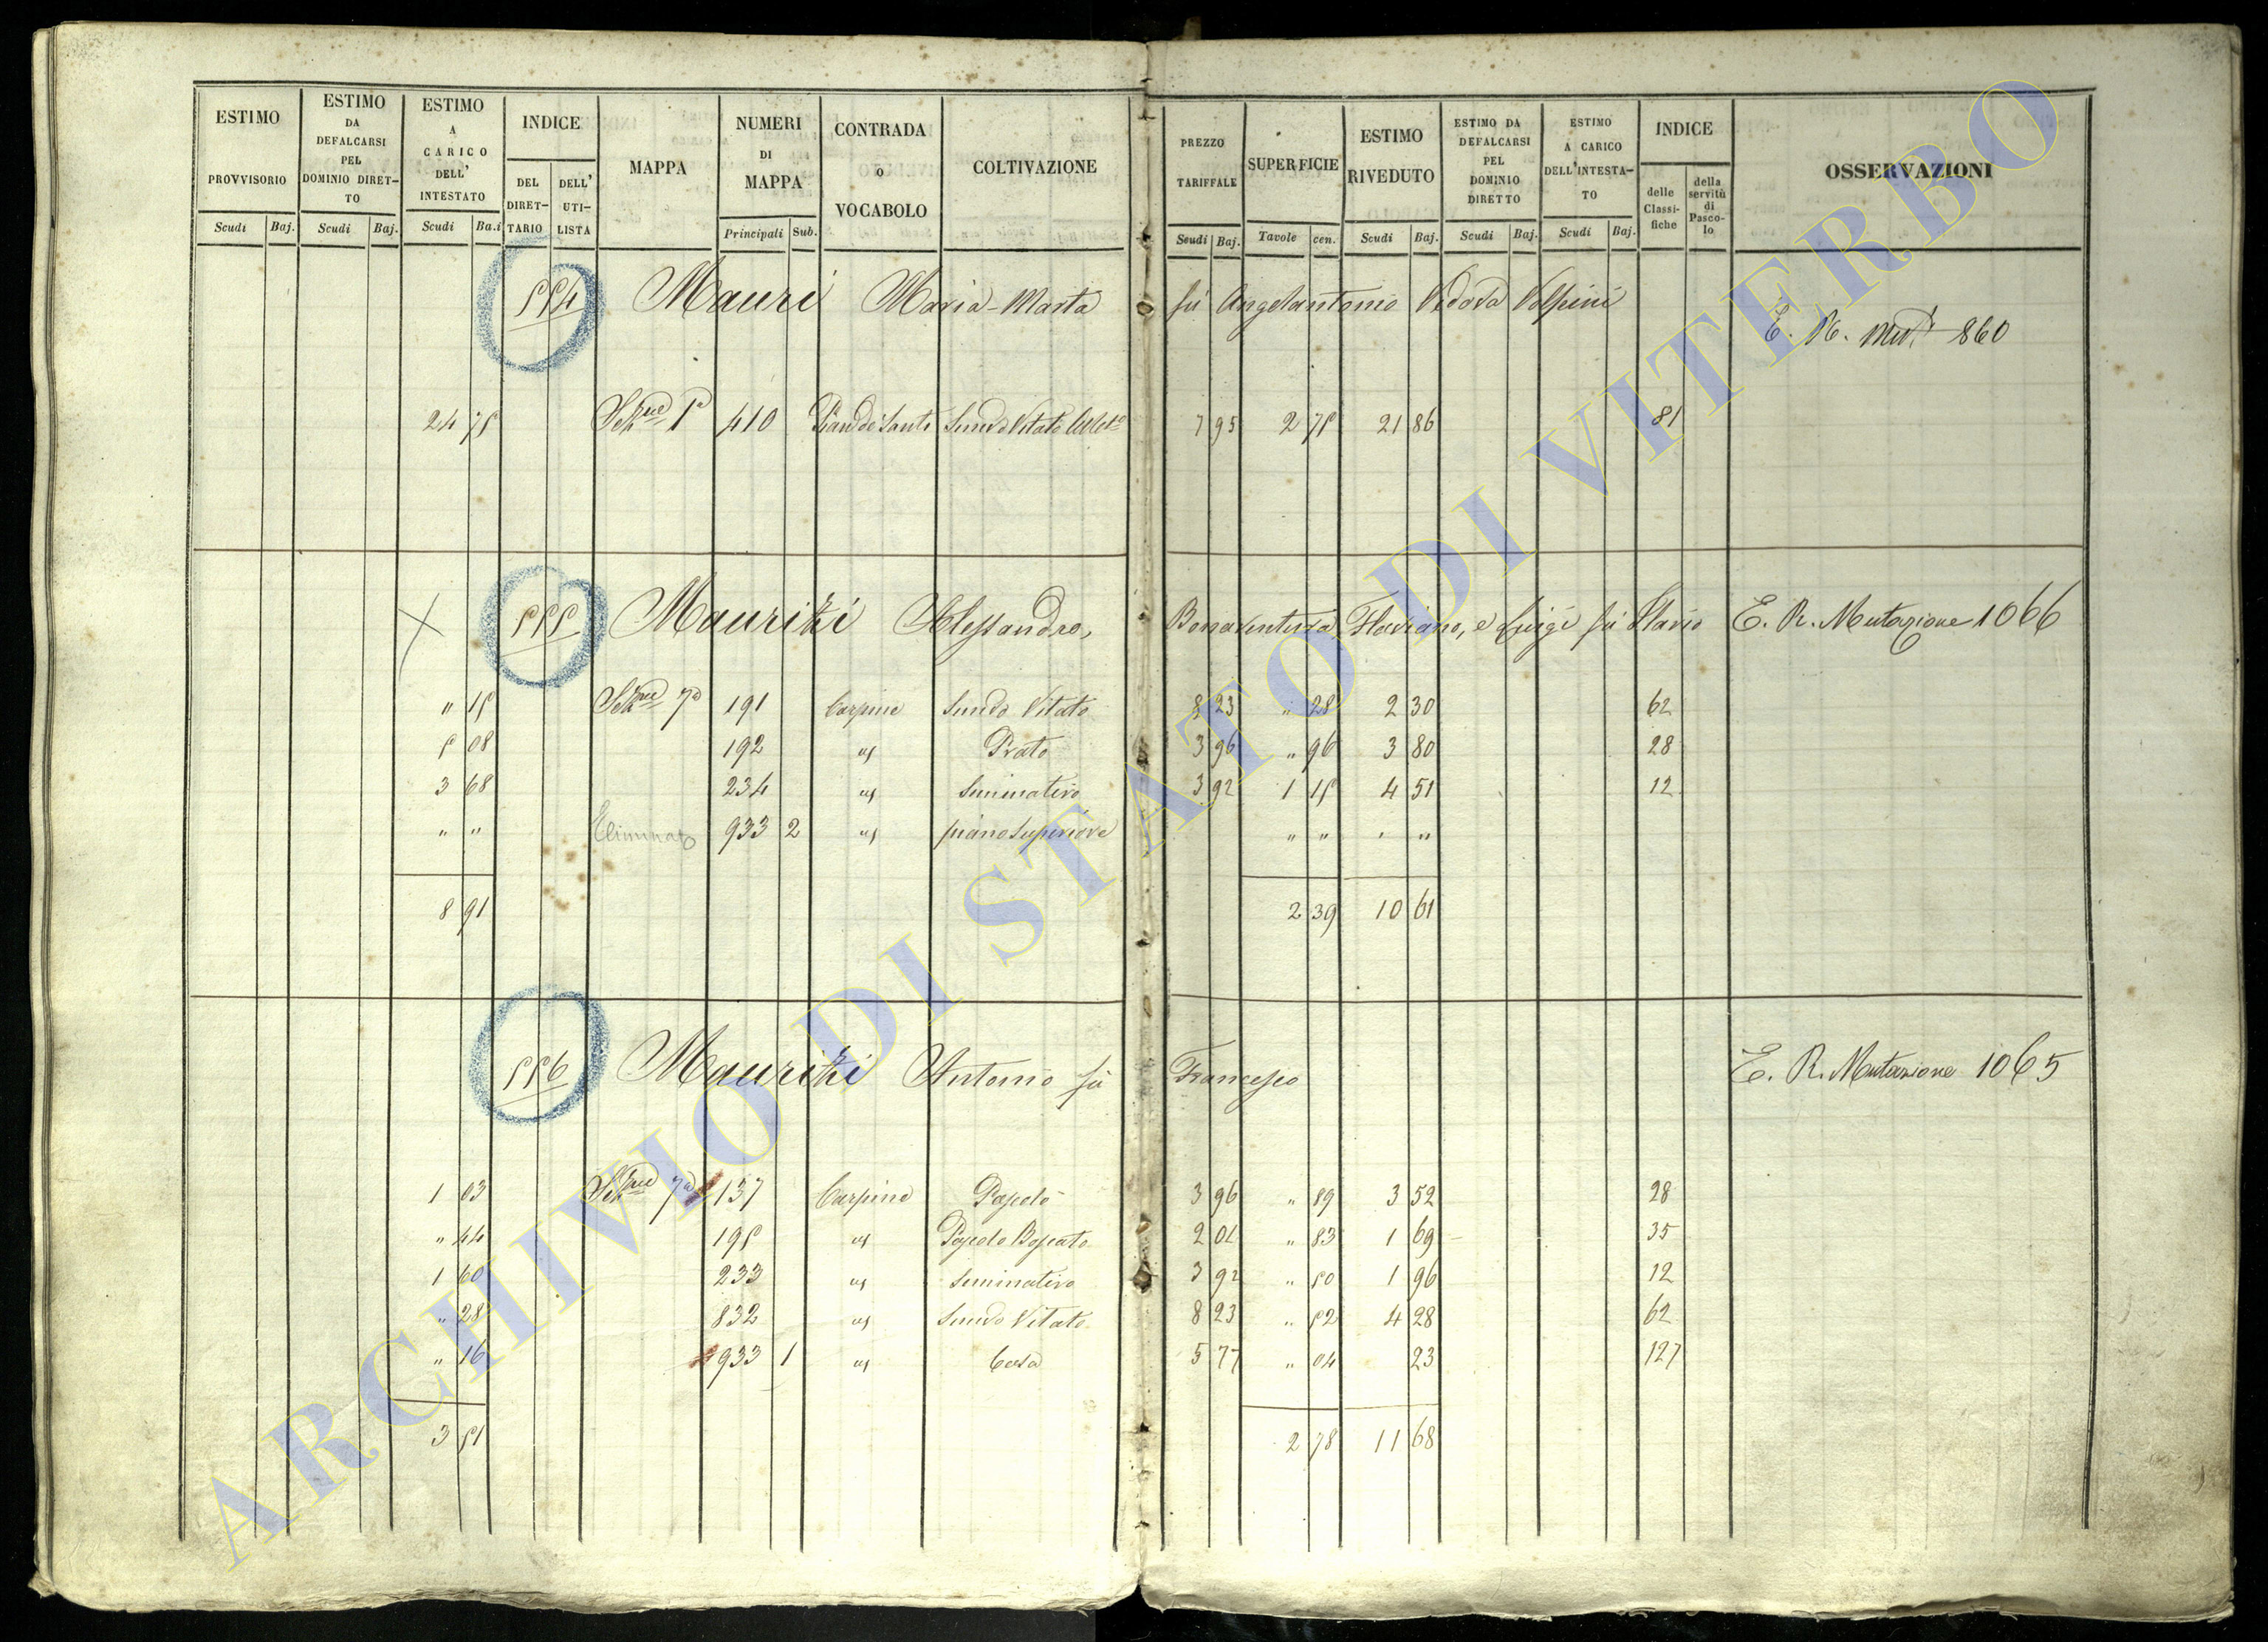 ESTIMO PROVVISORIO Scudi Baj.
ESTIMO DA DEFALCARSI PEL DOMINIO DIRET-TO Scudi Baj.
ESTIMO A CARICO DELL' INTESTATO Scudi Ba.i
INDICE DEL DIRET-TARIO DELL' UTI-LISTA
MAPPA
NUMERI DI MAPPA Principali Sub.
CONTRADA O VOCABOLO
COLTIVAZIONE
PREZZO TARIFFALE Scudi Baj.
SUPERFICIE Tavole cen.
ESTIMO RIVEDUTO Scudi Baj.
ESTIMO DA DEFALCARSI PEL DOMINIO DIRETTO Scudi Baj.
ESTIMO A CARICO DELL'INTESTA-TO Scudi Baj.
INDICE delle Classi-fiche della servitù di Pasco-lo
OSSERVAZIONI
554 Mauri Maria-Marta fù Angelantonio Vedova Volpini
E. R. Mut. 860
24 75 410 7 95 2 75 21 86 81
555 Maurizi Alessandro, Bonaventura, Flaviano, e Luigi fù Flavio E. R. Mutazione 1066
" 15 7a 191 Carpine Semvo Vitato 8 23 " 28 2 30 62
5 08 192 " Prato 3 96 " 96 3 80 28
3 68 234 " Seminativo 3 92 1 15 4 51 12
" " Eliminato 933 2 " piano superiore " " " "
8 91 2 39 10 61
556 Maurizi Antonio fù Francesco E. R. Mutazione 1065
1 03 7a 137 Carpine Pascolo 3 96 " 89 3 52 28
" 44 195 " Pascolo Boscato 2 04 " 83 1 69 35
1 60 233 " Seminativo 3 92 " 50 1 96 12
" 28 832 " Semvo Vitato 8 23 " 52 4 28 62
" 16 933 1 " Casa 5 77 " 04 23 127
3 51 2 78 11 68
ARCHIVIO DI STATO DI VITERBO